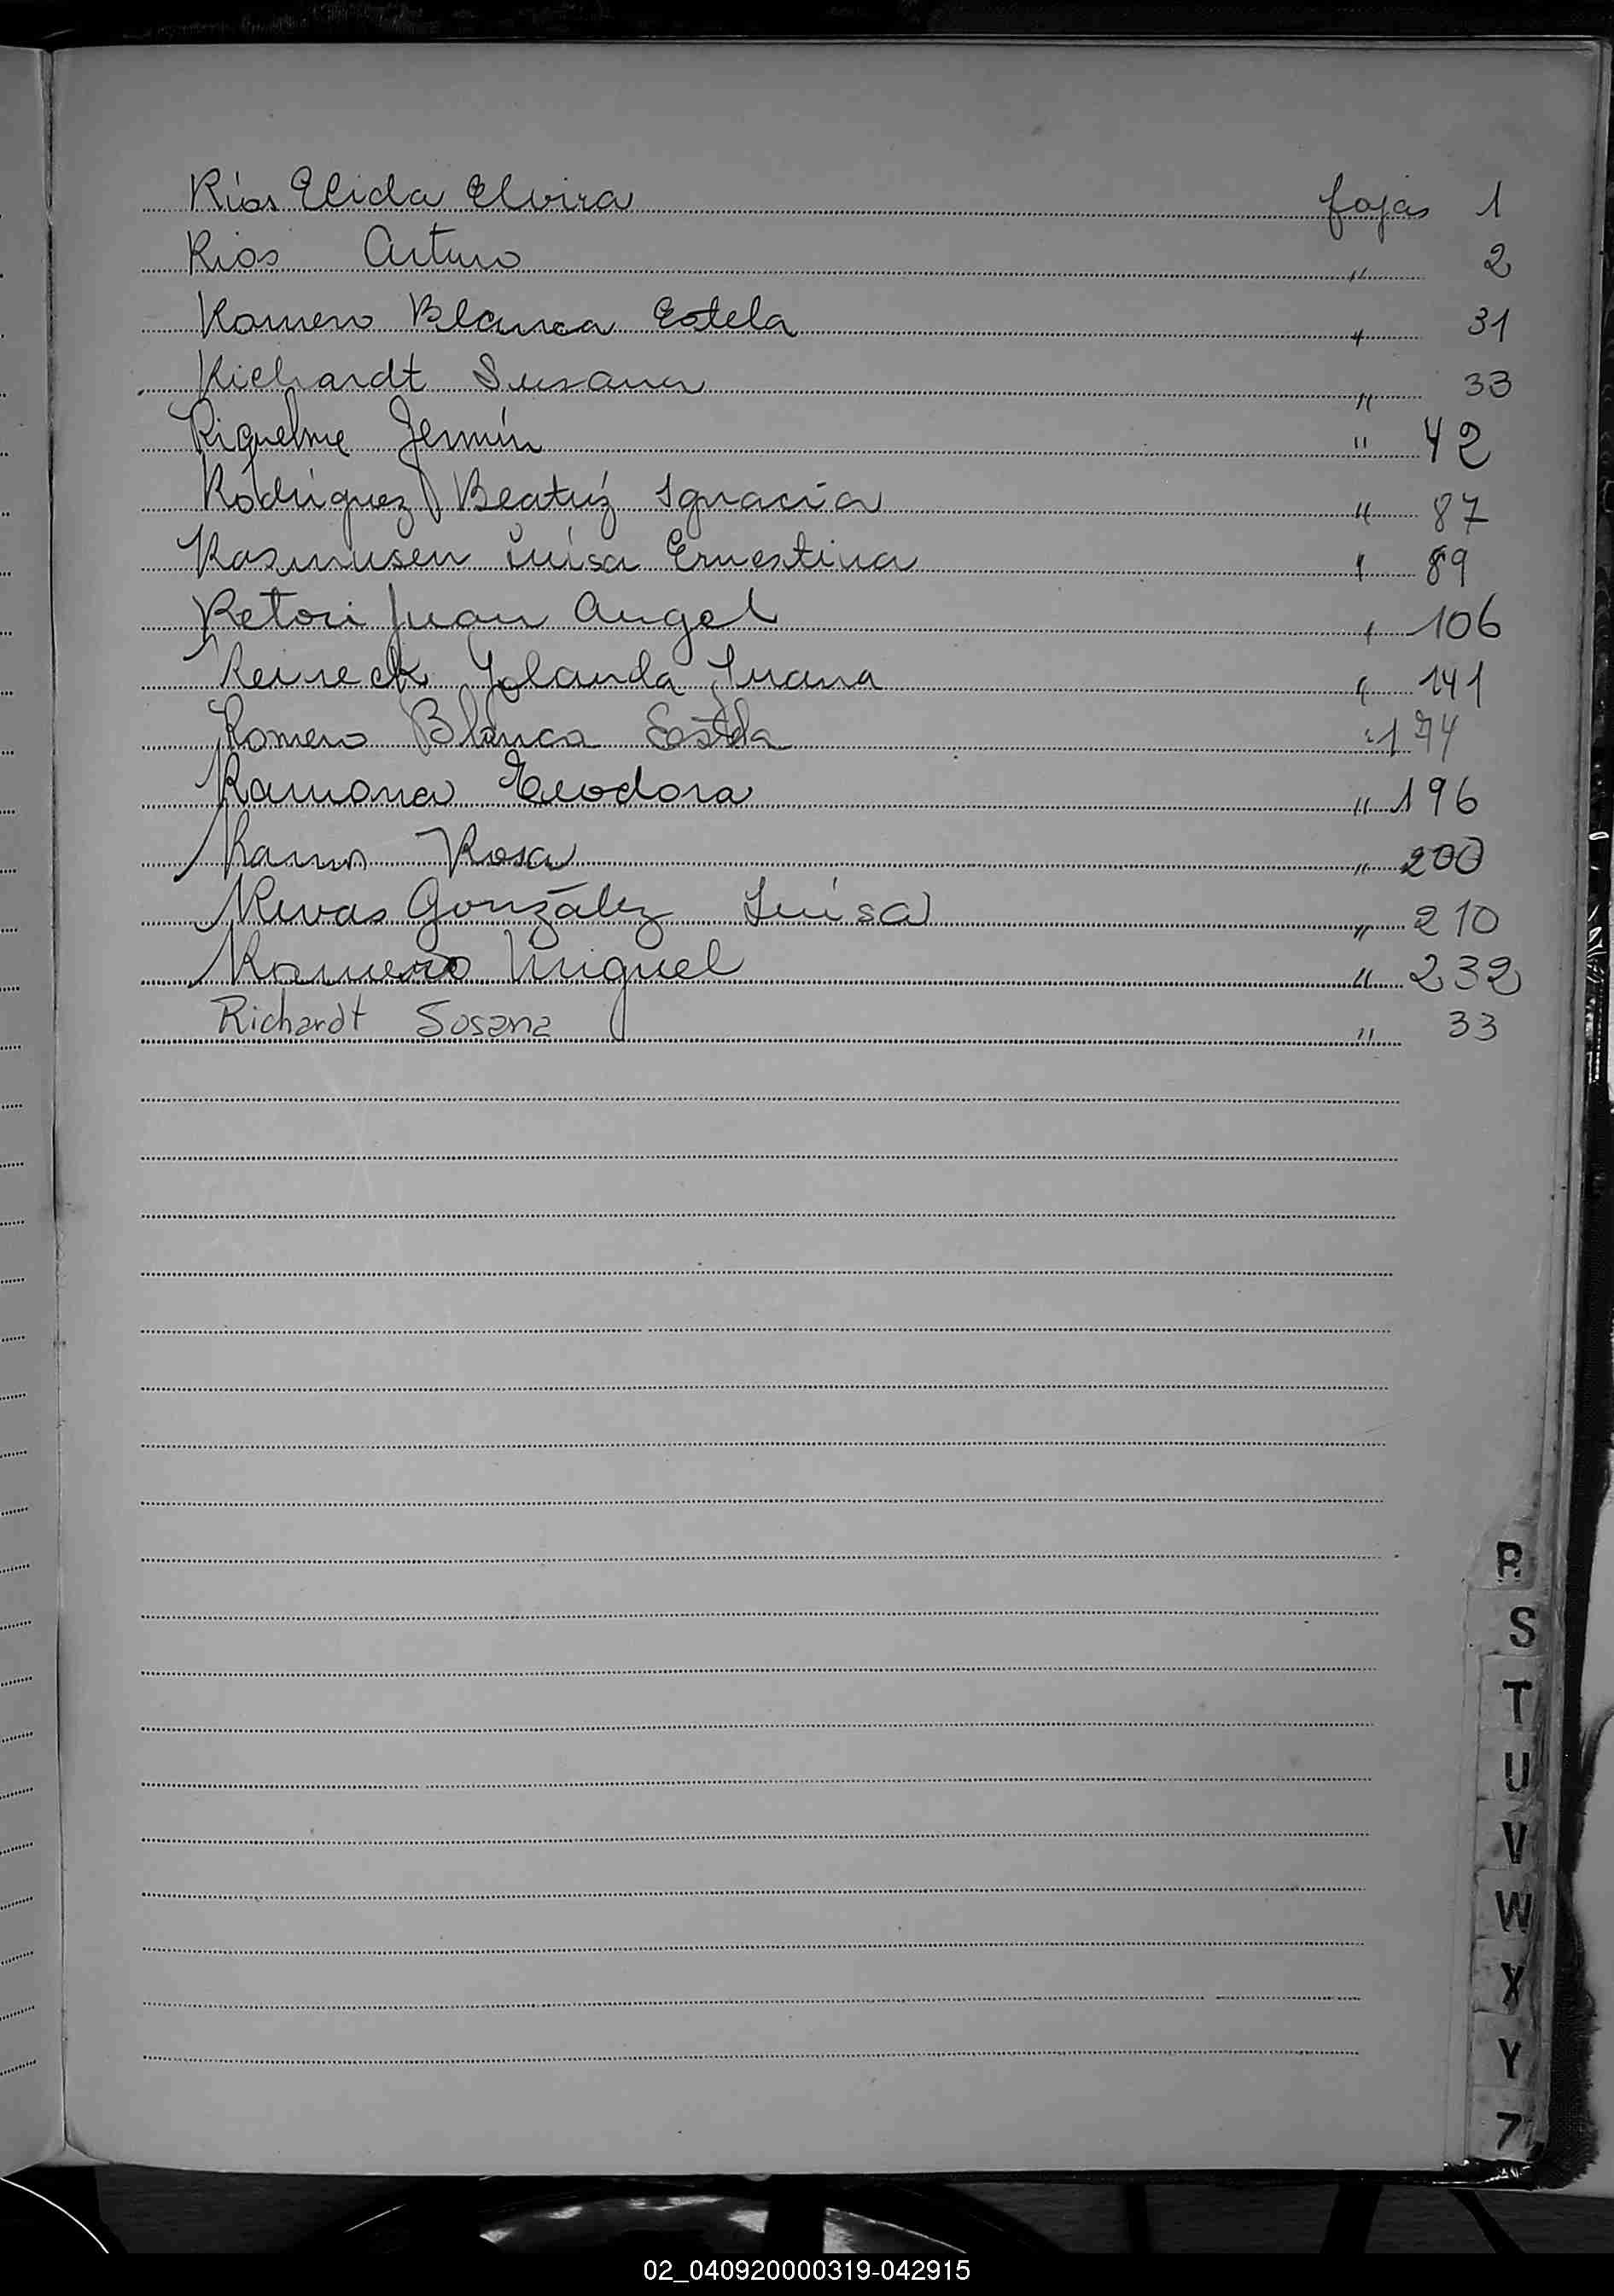 Ríos Elida Elvira fojas 1
Rios Arturo " 2
Romero Blanca Estela " 31
Richardt Susana " 33
Riquelme Fermín " 42
Rodríguez Beatríz Ignacia " 87
Rasmusen Luisa Ernestina " 89
Retori Juan Angel " 106
Reineck Yolanda Juana " 141
Romero Blanca Estela " 174
Ramona Teodora " 196
Ramos Rosa " 200
Rivas González Luisa " 210
Romero Miguel " 232
Richardt Susana " 33
R
S
T
U
V
W
X
Y
Z
02_040920000319-042915